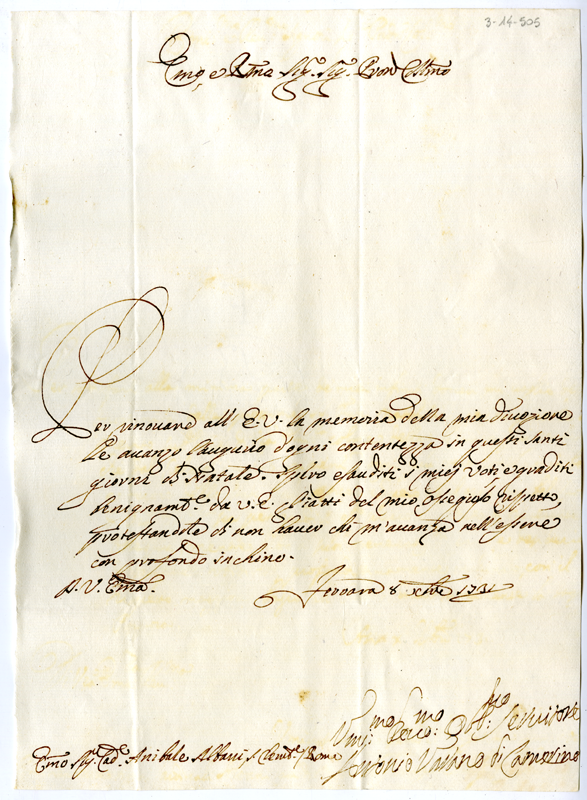 3-14-505
Emo, e Rmo Sigr. Sigr. Pron Colmo
Per rinovare all' E.V. la memoria della mia divozione
le avanzo l'augurio d'ogni contentezza in questi santi
giorni di Natale. Spero esauditi i miei voti e graditi
benignamte. da V.E. gl'atti del mio ossequioso rispetto,
protestandole di non haver chi m'avanza nell'essere
con profondo inchino.
D.V. Emza.
Ferrara 8 Xbre 1731
Umilmo Devmo Obbmo: Servitore
Antonio Varano di Camerino
Emo Sigr. Cad. Anibale Albani S. Clemte. / Roma